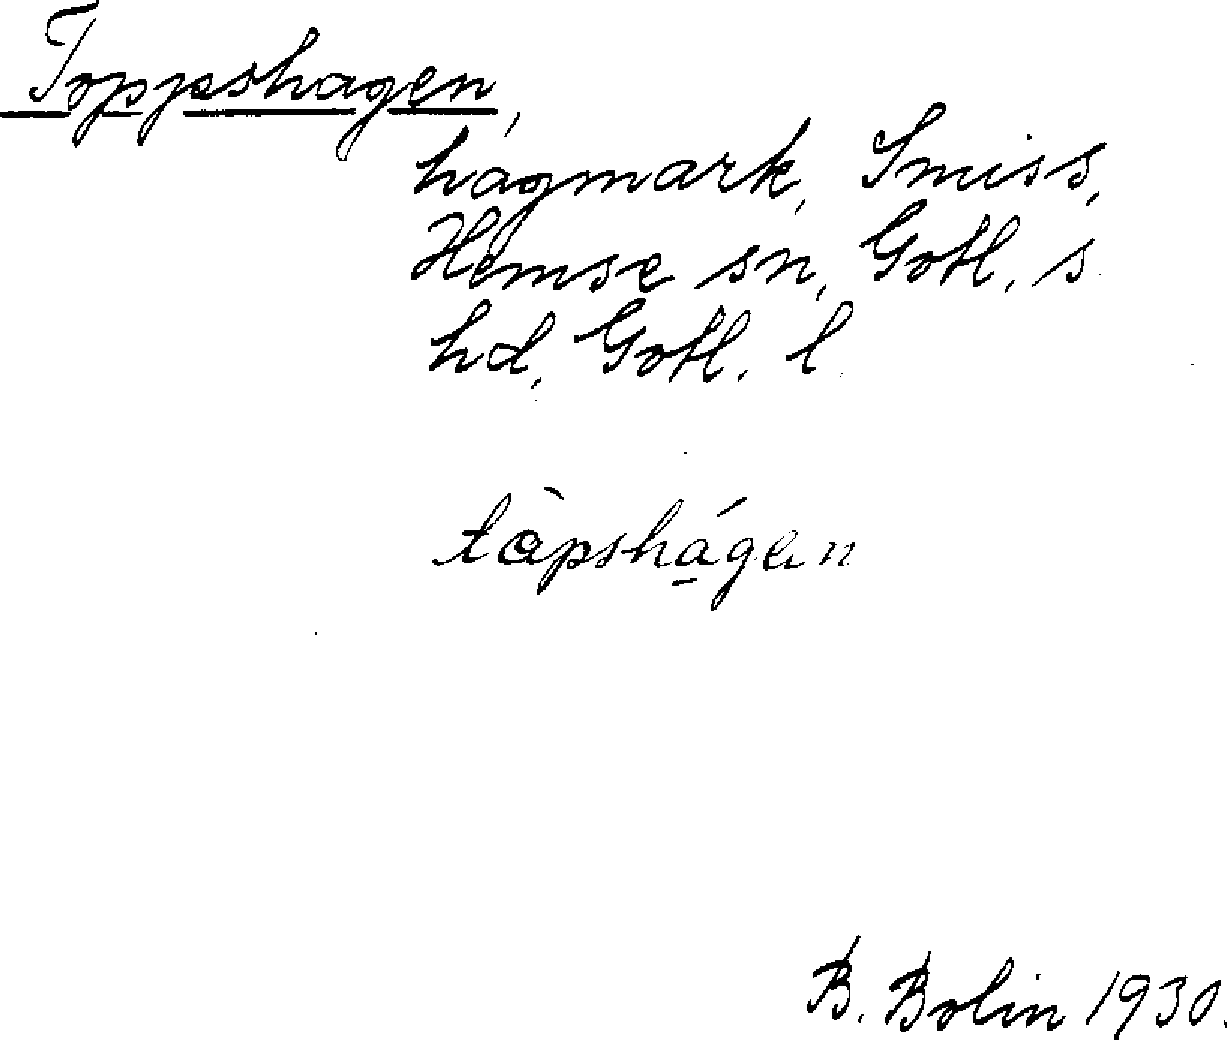 Toppshagen,
hagmark, Smiss,
Hemse sn, Gotl. s
hd, Gotl. l
tòpshágen
B. Bolin 1930.